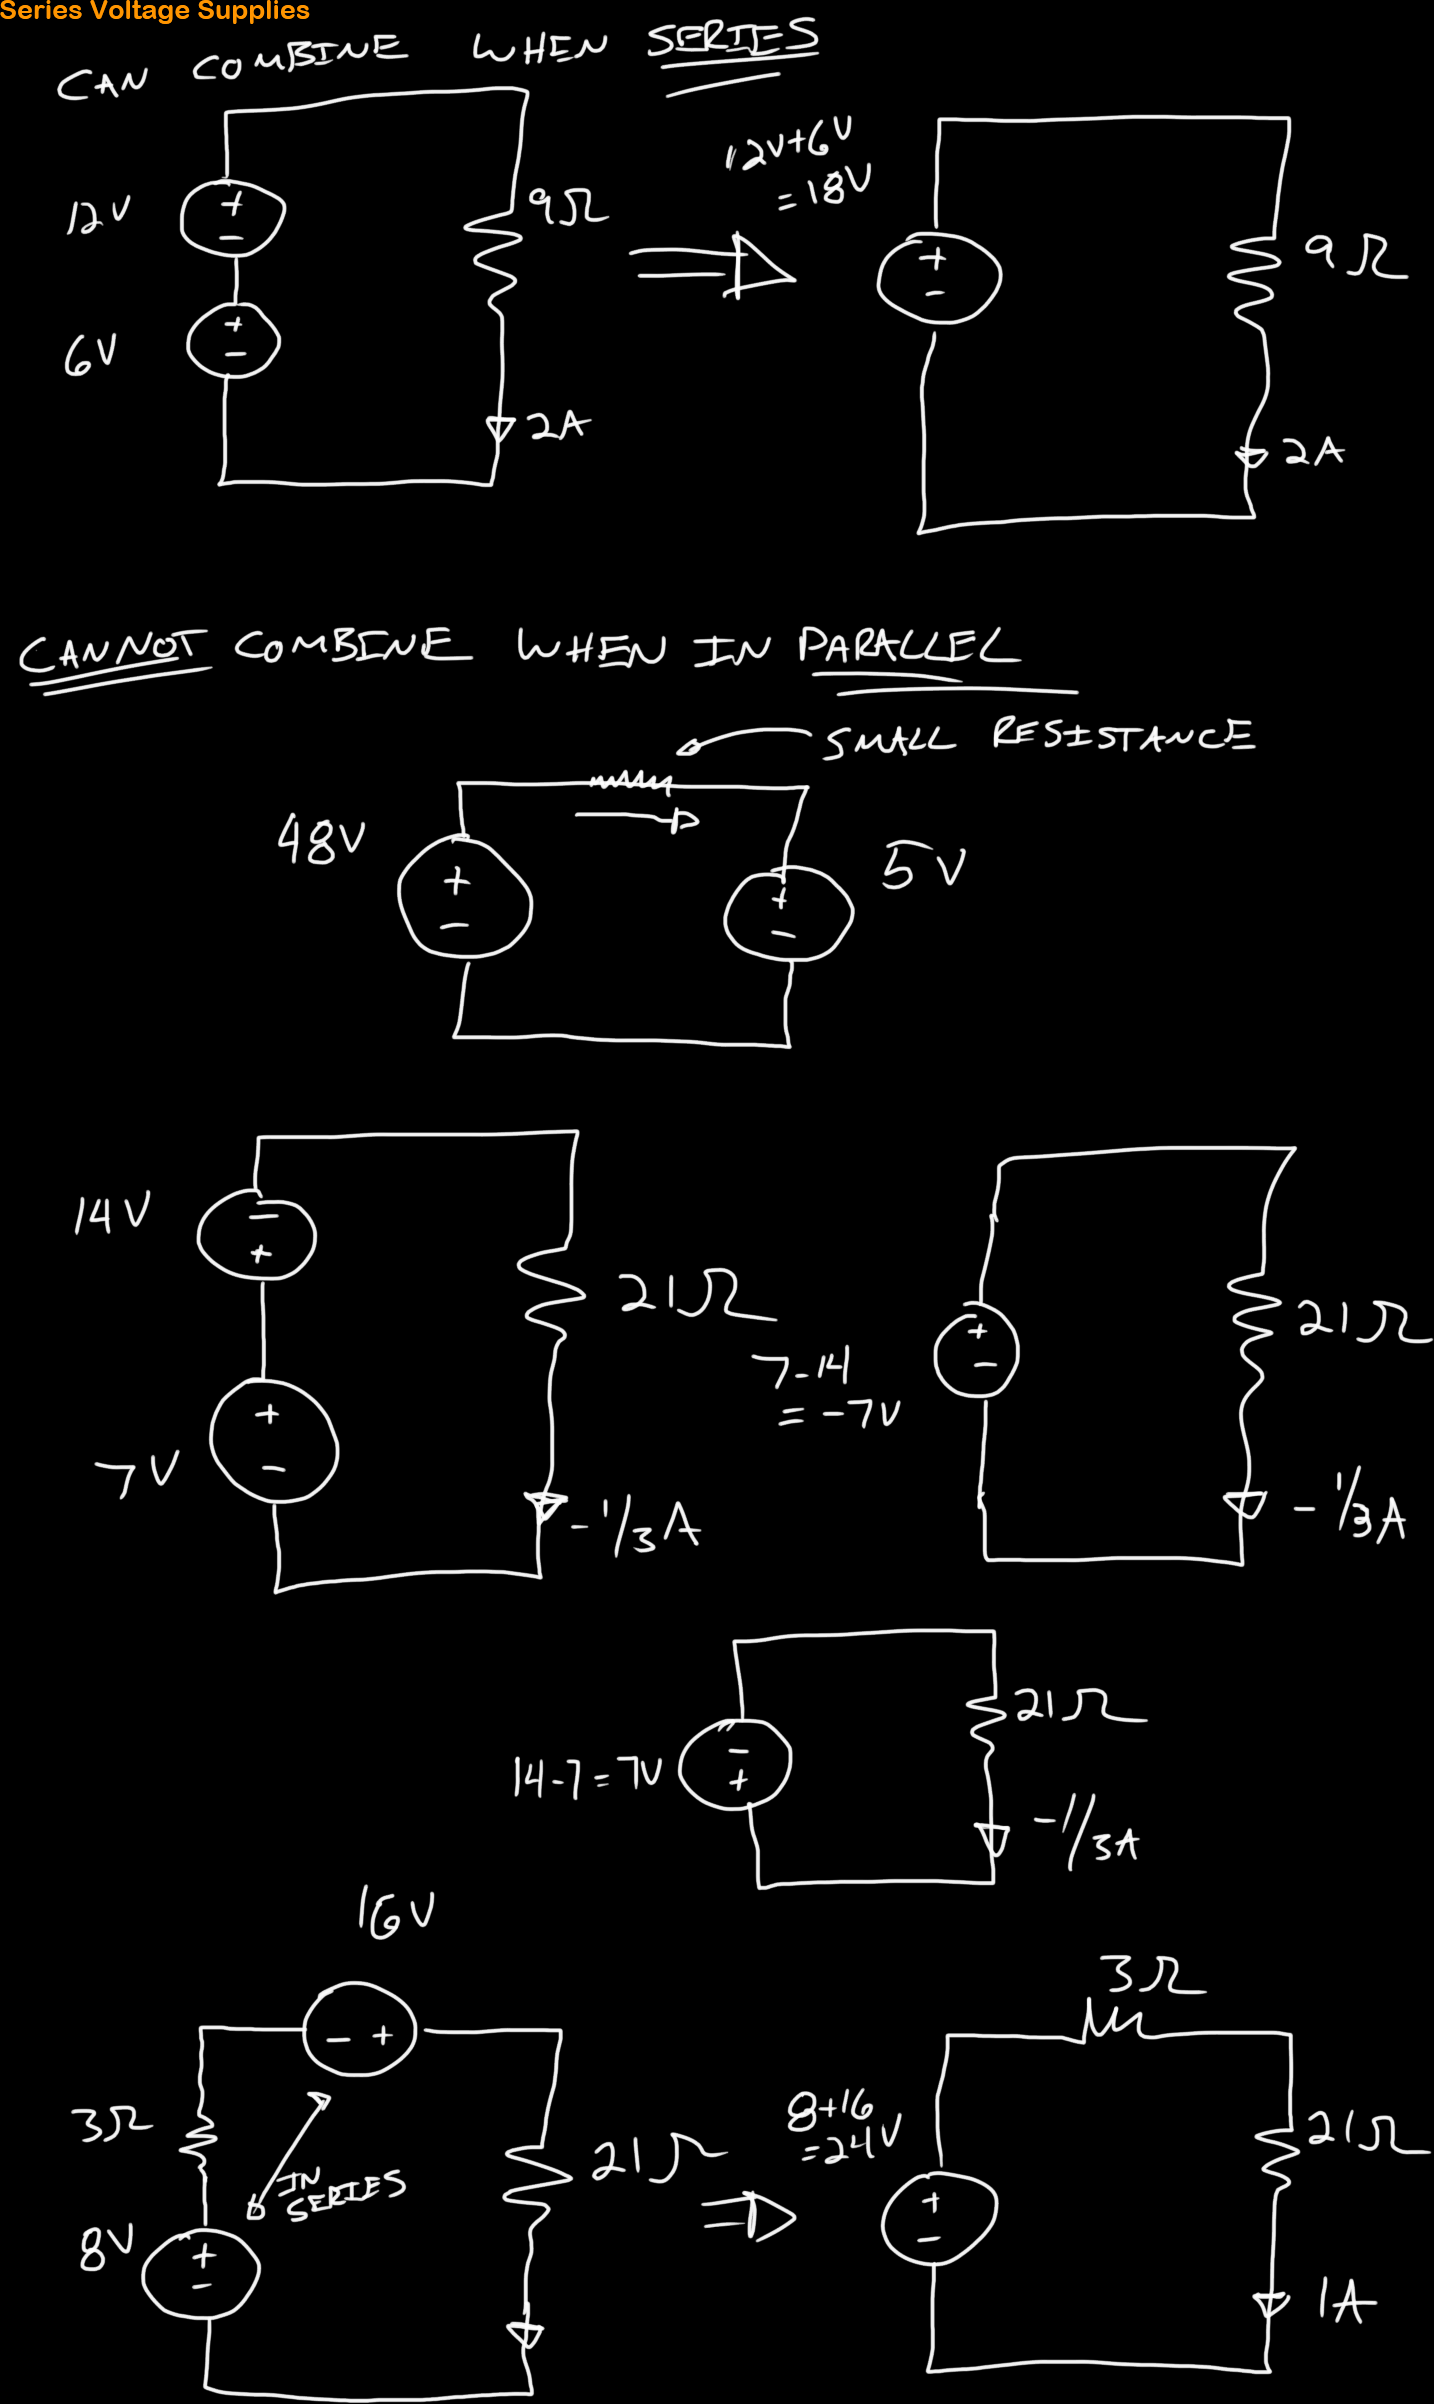 Series Voltage Supplies
CAN COMBINE WHEN SERIES
12V
6V
+
-
+
-
9Ω
2A
12V+6V
=18V
+
-
9Ω
2A
CANNOT COMBINE WHEN IN PARALLEL
SMALL RESISTANCE
48V
+
-
+
-
5V
14V
-
+
7V
+
-
21Ω
-1/3A
7-14
=-7V
+
-
21Ω
-1/3A
14-7=7V
-
+
21Ω
-1/3A
16V
- +
3Ω
IN
SERIES
8V
+
-
21Ω
8+16
=24V
3Ω
+
-
21Ω
1A